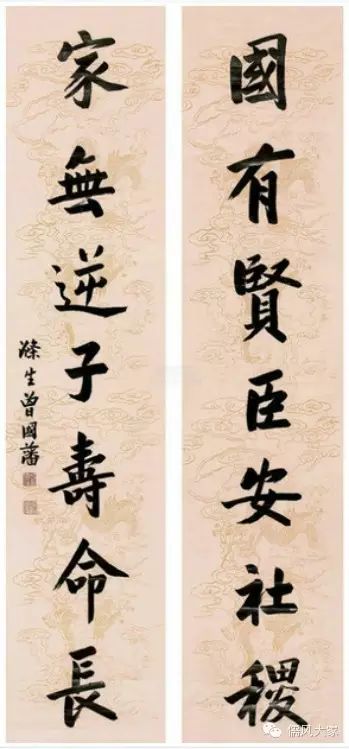 國有賢臣安社稷
家無逆子壽命長
滌生曾國藩
儒风大家